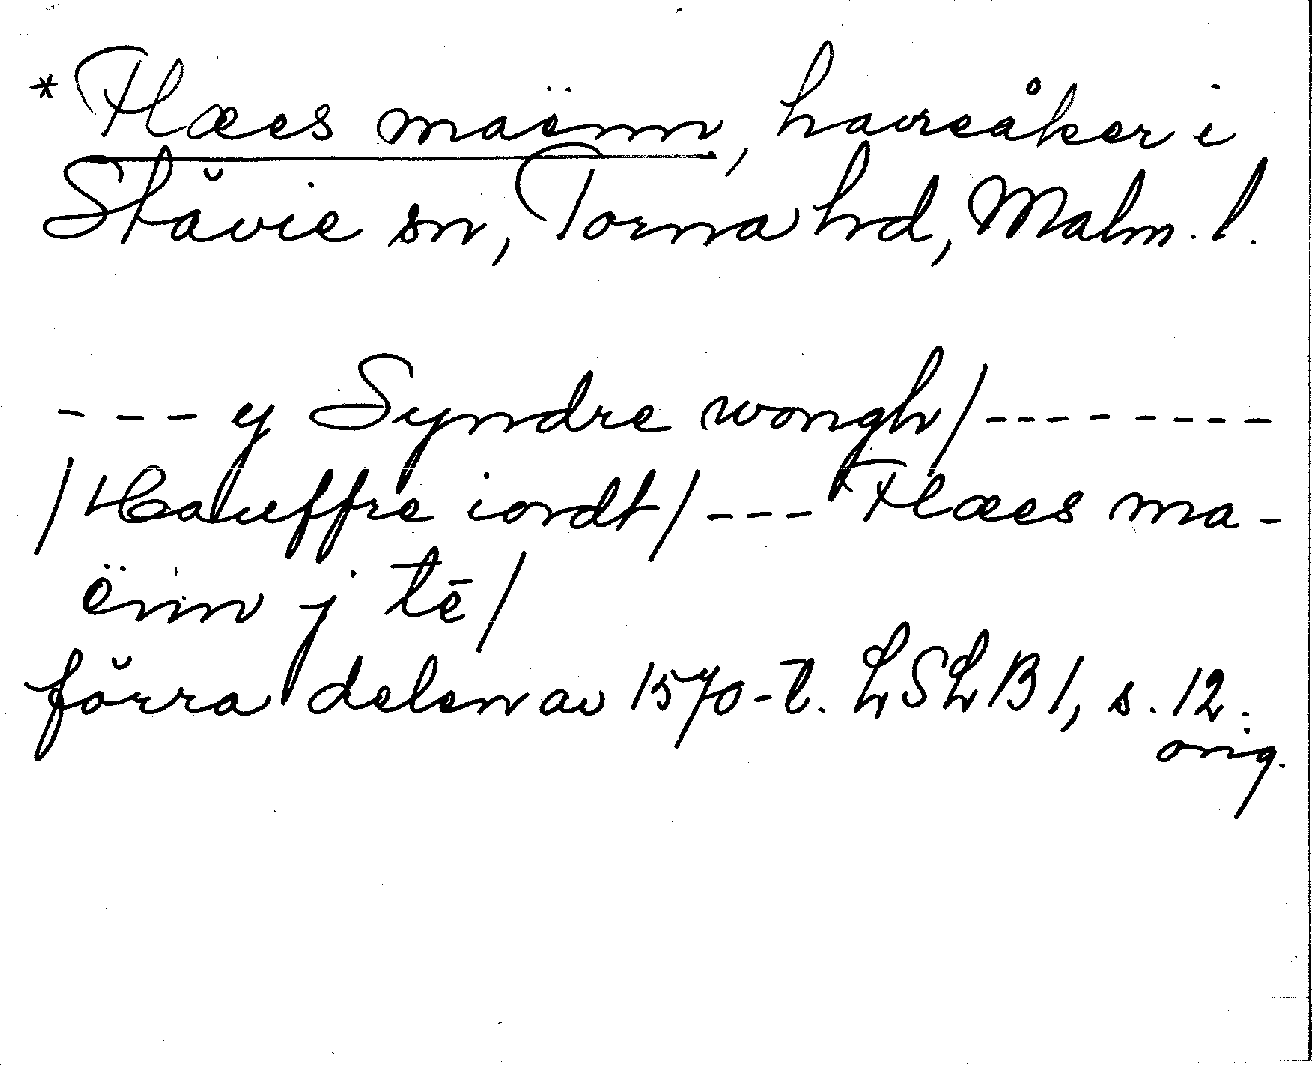 *Flæes maënn, havreåker i
Stävie sn, Torna hd, Malm. l.
- - - y Syndre wongh/- - - - - - - -
/Hauffre iordt/- - - Flæes ma-
ënn j tē/
förra delen av 1570-t. LSLB 1, s. 12.
orig.